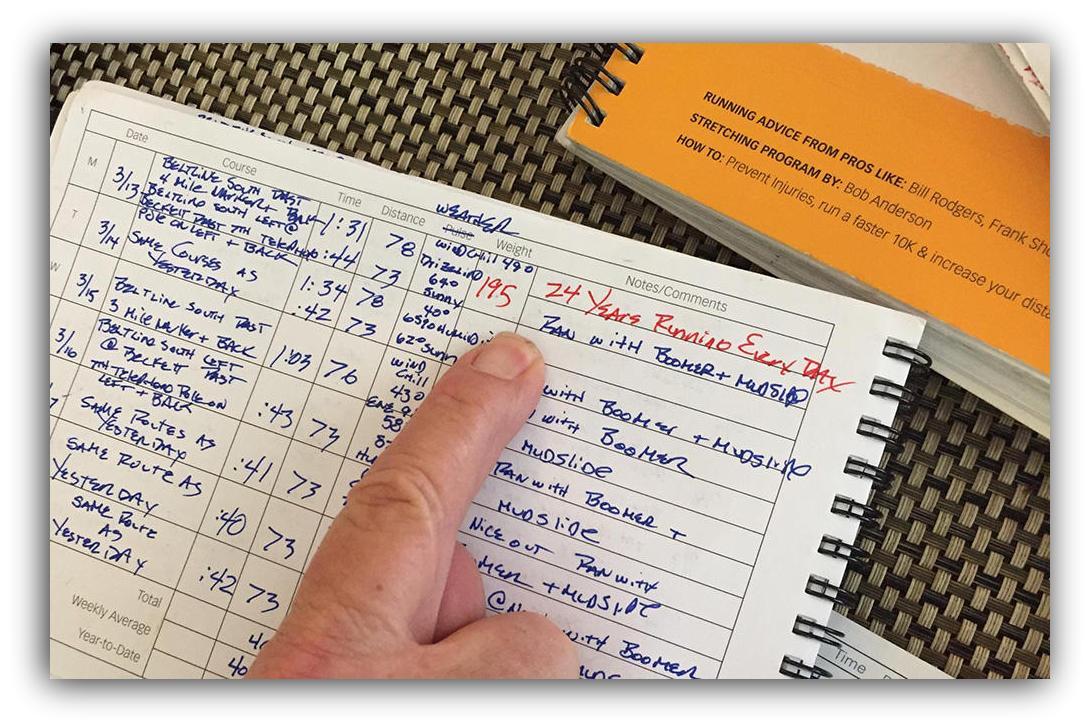 RUNNING ADVICE FROM PROS LIKE: Bill Rodgers, Frank Sho
STRETCHING PROGRAM BY: Bob Anderson
HOW TO: Prevent Injuries, run a faster 10K & increase your dista
Date Course Time Distance WEATHER Pulse Weight Notes/Comments
M 3/13 BELTLINE SOUTH PAST
4 MILE MARKER + BACK 1:31 78 WIND CHILL 195 24 YEARS RUNNING EVERY DAY
BELTLINE SOUTH LEFT @
BECKETT PAST 7TH TELEPHONE :44 73 RAN WITH BOOMER + MUDSLIDE
POLE ON LEFT + BACK
T 3/14 SAME COURSES AS
YESTERDAY 1:34 78 SUNNY
:42 73 WITH BOOMER + MUDSLIDE
W 3/15 BELTLINE SOUTH PAST
3 MILE MARKER + BACK 1:03 76 WITH BOOMER
BELTLINE SOUTH LEFT
@ BECKETT PAST :43 73 WIND CHILL MUDSLIDE
7TH TELEPHONE POLE ON
LEFT + BACK
3/16 SAME ROUTES AS
YESTERDAY :41 73 RAN WITH BOOMER +
MUDSLIDE
SAME ROUTE AS
YESTERDAY :40 73 NICE OUT RAN WITH
+ MUDSLIDE
SAME ROUTE
AS
YESTERDAY :42 73 WITH BOOMER
Total
Weekly Average
Year-to-Date
Time